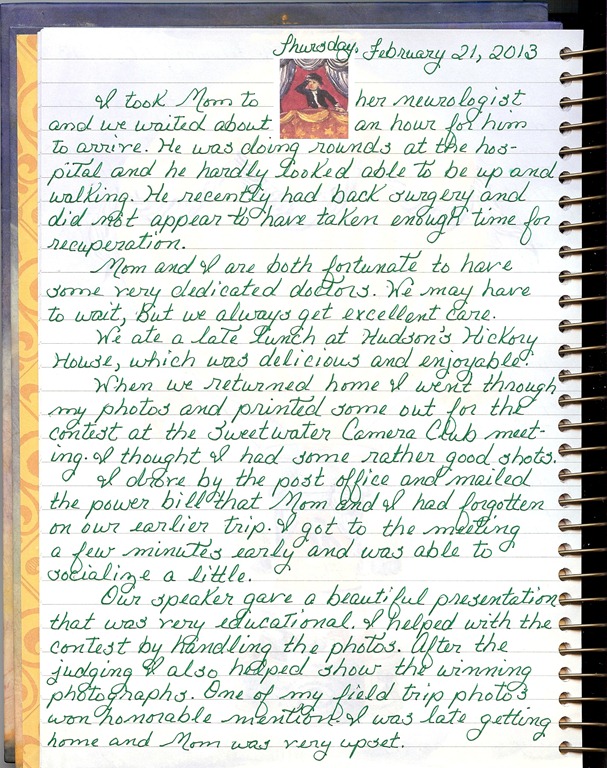 Thursday, February 21, 2013
I took Mom to her neurologist
and we waited about an hour for him
to arrive. He was doing rounds at the hos-
pital and he hardly looked able to be up and
walking. He recently had back surgery and
did not appear to have taken enough time for
recuperation.
Mom and I are both fortunate to have
some very dedicated doctors. We may have
to wait, but we always get excellent care.
We ate a late lunch at Hudson's Hickory
House, which was delicious and enjoyable!
When we returned home I went through
my photos and printed some out for the
contest at the Sweetwater Camera Club meet-
ing. I thought I had some rather good shots.
I drove by the post office and mailed
the power bill that Mom and I had forgotten
on our earlier trip. I got to the meeting
a few minutes early and was able to
socialize a little.
Our speaker gave a beautiful presentation
that was very educational. I helped with the
contest by handling the photos. After the
judging I also helped show the winning
photographs. One of my field trip photos
won honorable mention. I was late getting
home and Mom was very upset.